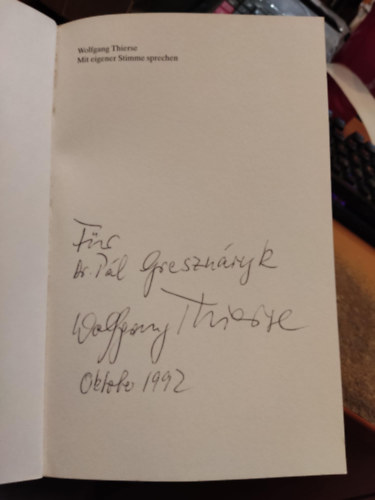 Wolfgang Thierse
Mit eigener Stimme sprechen
Für
Dr. Pál Gresznáryk
Wolfgang Thierse
Oktober 1992